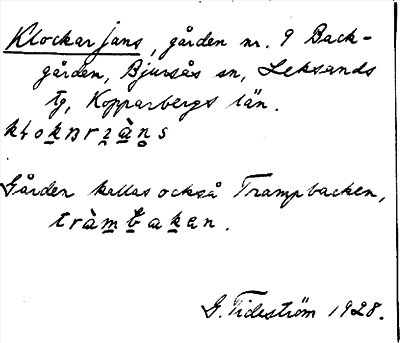 Klockar jans, gården nr. 9 Back-
gården, Bjursås sn, Leksands
tg, Kopparbergs län.
Gården kallas också Trampbacken,
tràmbakan.
G. Tideström 1928.